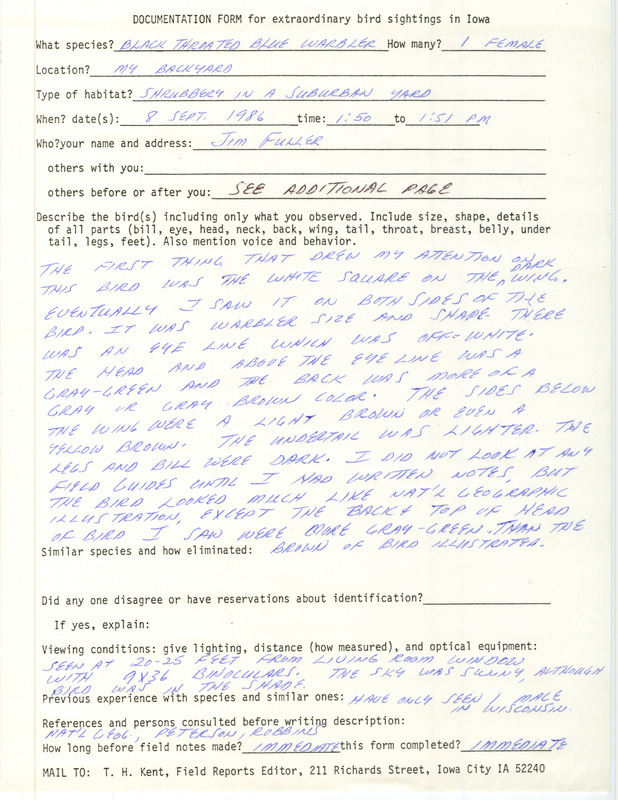 DOCUMENTATION FORM for extraordinary bird sightings in Iowa
What species? BLACK THROATED BLUE WARBLER How many? 1 FEMALE
Location? MY BACKYARD
Type of habitat? SHRUBBERY IN A SUBURBAN YARD
When? date(s): 8 SEPT. 1986 time: 1:50 to 1:51 PM
Who?your name and address: JIM FULLER
others with you:
others before or after you: SEE ADDITIONAL PAGE
Describe the bird(s) including only what you observed. Include size, shape, details
of all parts (bill, eye, head, neck, back, wing, tail, throat, breast, belly, under
tail, legs, feet). Also mention voice and behavior.
THE FIRST THING THAT DREW MY ATTENTION ON
THIS BIRD WAS THE WHITE SQUARE ON THE DARK WING.
EVENTUALLY I SAW IT ON BOTH SIDES OF THE
BIRD. IT WAS WARBLER SIZE AND SHAPE THERE
WAS AN EYE LINE WHICH WAS OFF-WHITE.
THE HEAD AND ABOVE THE EYE LINE WAS A
GRAY-GREEN AND THE BACK WAS MORE OF A
GRAY OR GRAY BROWN COLOR. THE SIDES BELOW
THE WING WERE A LIGHT BROWN OR EVEN A
YELLOW BROWN. THE UNDERTAIL WAS LIGHTER. THE
LEGS AND BILL WERE DARK. I DID NOT LOOK AT ANY
FIELD GUIDES UNTIL I HAD WRITTEN NOTES, BUT
THE BIRD LOOKED MUCH LIKE NAT'L GEOGRAPHIC
ILLUSTRATION, EXCEPT THE BACK & TOP OF HEAD
OF BIRD I SAW WERE MORE GRAY-GREEN THAN THE
Similar species and how eliminated: BROWN OF BIRD ILLUSTRATED.
Did any one disagree or have reservations about identification?
If yes, explain:
Viewing conditions: give lighting, distance (how measured), and optical equipment:
SEEN AT 20-25 FEET FROM LIVING ROOM WINDOW
WITH 9X36 BINOCULARS. THE SKY WAS SUNNY, ALTHOUGH
BIRD WAS IN THE SHADE.
Previous experience with species and similar ones: HAVE ONLY SEEN 1 MALE
IN WISCONSIN.
References and persons consulted before writing description:
NAT'L GEOG., PETERSON, ROBBINS
How long before field notes made? IMMEDIATE this form completed? IMMEDIATE
MAIL TO: T. H. Kent, Field Reports Editor, 211 Richards Street, Iowa City IA 52240